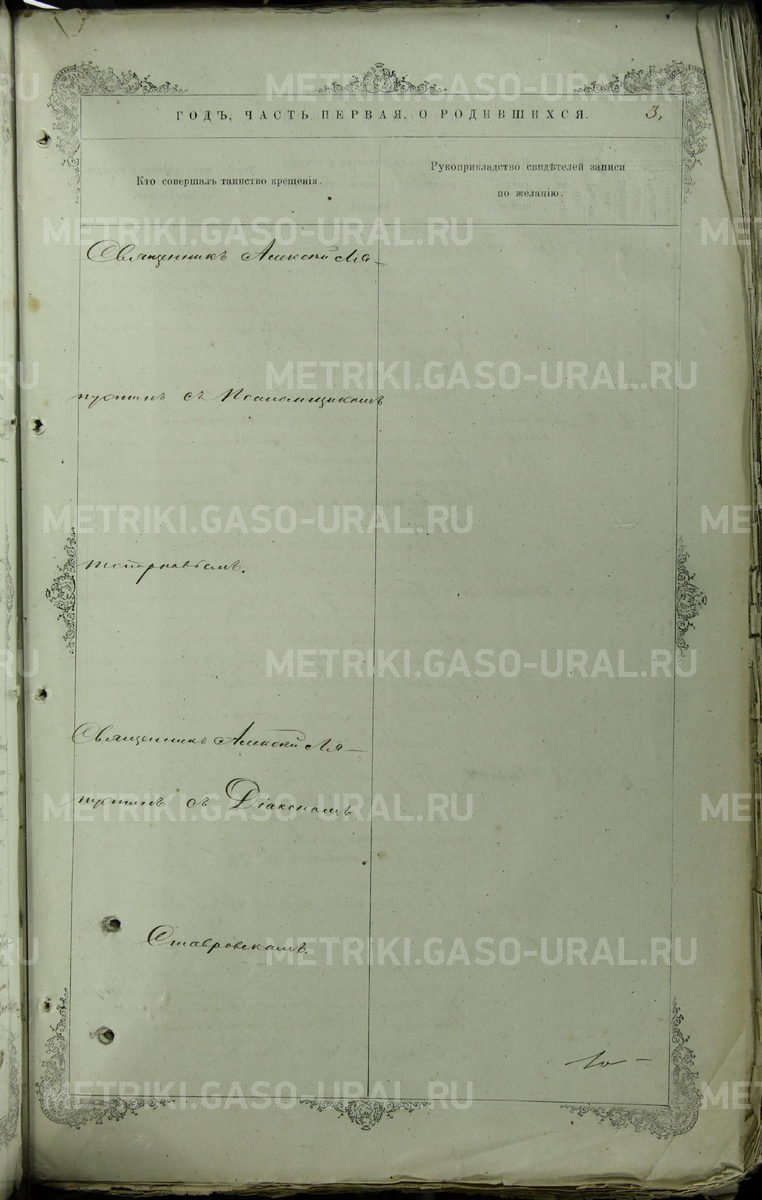 ГОДЪ, ЧАСТЬ ПЕРВАЯ, О РОДИВШИХСЯ.
3,
Кто совершалъ таинство крещенія.
Рукоприкладство свидѣтелей записи
по желанію.
Священникъ Алексѣй Ла-
пустинъ съ Псаломщикомъ
Священникъ Алексѣй Ла-
пустинъ съ Діакономъ
Ставровскимъ.
METRIKI.GASO-URAL.RU